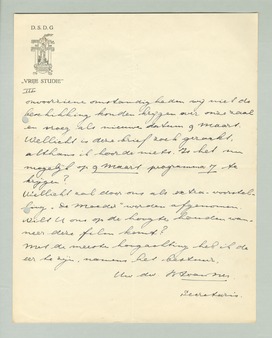 D.S.D.G
"VRIJE STUDIE"
III
onvoorziene omstandigheden wij niet de
beschikking konden krijgen over onze zaal
en vroeg als nieuwe datum 9 maart.
Wellicht is deze brief zoek geraakt,
althans ik hoorde niets. Is het nu
mogelijk op 9 Maart programma 7 te
krijgen?
Wellicht zal door ons als extra voorstel-
ling "De Moeder" worden afgenomen
Wilt U ons op de hoogte houden wan-
neer deze film komt?
Met de meeste hoogachting heb ik de
eer te zijn, namens het bestuur,
Uw dw.
Secretaris.